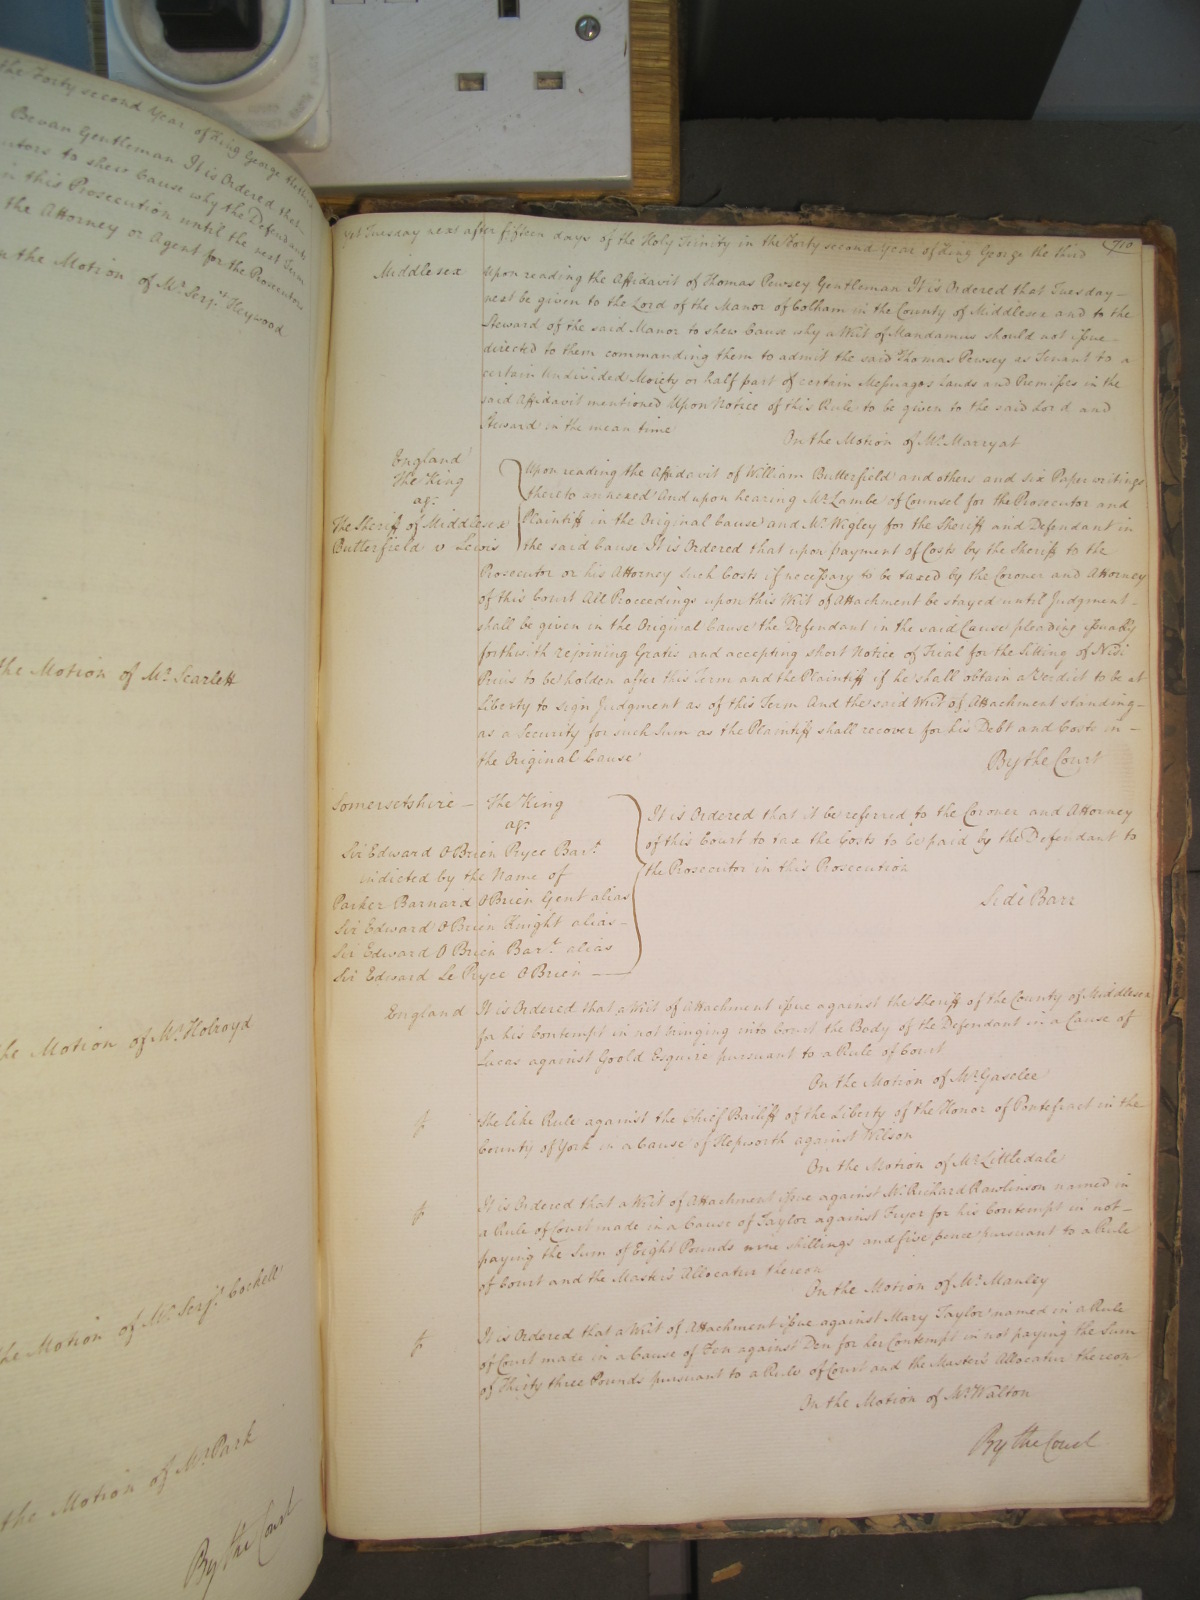 the Forty second Year of King George the third
Bevan Gentleman It is Ordered that
to shew Cause why the Defendants
in this Prosecution until the next Term
the Attorney or Agent for the Prosecutors
the Motion of Mr. Serjt. Heywood
the Motion of Mr. Scarlett
the Motion of Mr. Holroyd
the Motion of Mr. Serjt. Cockell
the Motion of Mr. Park
By the Court
Yet Tuesday next after fifteen days of the Holy Trinity in the Forty second Year of King George the third
710
Middlesex Upon reading the Affidavit of Thomas Pewsey Gentleman It is Ordered that Tuesday
next be given to the Lord of the Manor of Colham in the County of Middlesex and to the
Steward of the said Manor to shew Cause why a Writ of Mandamus should not issue
directed to them commanding them to admit the said Thomas Pewsey as Tenant to a
certain Undivided Moiety or half part of certain Messuages Lands and Premisses in the
said Affidavit mentioned Upon Notice of this Rule to be given to the said Lord and
Steward in the mean time
On the Motion of Mr. Marryat
England
The King
agt.
The Sheriff of Middlesex
Butterfield v Lewis
Upon reading the Affidavit of William Butterfield and others and six Paper writings
thereto annexed And upon hearing Mr. Lambe of Counsel for the Prosecutor and
Plaintiff in the Original Cause and Mr. Wigley for the Sheriff and Defendant in
the said Cause It is Ordered that upon payment of Costs by the Sheriff to the
Prosecutor or his Attorney such Costs if necessary to be taxed by the Coroner and Attorney
of this Court All Proceedings upon this Writ of Attachment be stayed until Judgment
shall be given in the Original Cause the Defendant in the said Cause pleading issuably
forthwith rejoining Gratis and accepting short Notice of Trial for the Sitting of Nisi
Prius to be holden after this Term and the Plaintiff if he shall obtain a Verdict to be at
Liberty to sign Judgment as of this Term And the said Writ of Attachment standing
as a Security for such Sum as the Plaintiff shall recover for his Debt and Costs in
the Original Cause
By the Court
Somersetshire – The King
agt.
Sir Edward O Brien Pryce Bart.
indicted by the Name of
Parker Barnard O Brien Gent alias
Sir Edward O Brien Knight alias
Sir Edward O Brien Bart. alias
Sir Edward Le Pryce O Brien
It is Ordered that it be referred to the Coroner and Attorney
of this Court to tax the Costs to be paid by the Defendant to
the Prosecutor in this Prosecution
Side Barr
England It is Ordered that a Writ of Attachment issue against the Sheriff of the County of Middlesex
for his Contempt in not bringing into Court the Body of the Defendant in a Cause of
Lucas against Goold Esquire pursuant to a Rule of Court
On the Motion of Mr. Gaselee
The like Rule against the Chief Bailiff of the Liberty of the Honor of Pontefract in the
County of York in a Cause of Hepworth against Wilson
On the Motion of Mr. Littledale
It is Ordered that a Writ of Attachment issue against Mr. Richard Rawlinson named in
a Rule of Court made in a Cause of Taylor against Fryer for his Contempt in not
paying the Sum of Eight Pounds nine shillings and five pence pursuant to a Rule
of Court and the Master's Allocatur thereon
On the Motion of Mr. Manley
It is Ordered that a Writ of Attachment issue against Mary Taylor named in a Rule
of Court made in a Cause of Fen against Den for her Contempt in not paying the Sum
of Thirty three Pounds pursuant to a Rule of Court and the Master's Allocatur thereon
On the Motion of Mr. Walton
By the Court